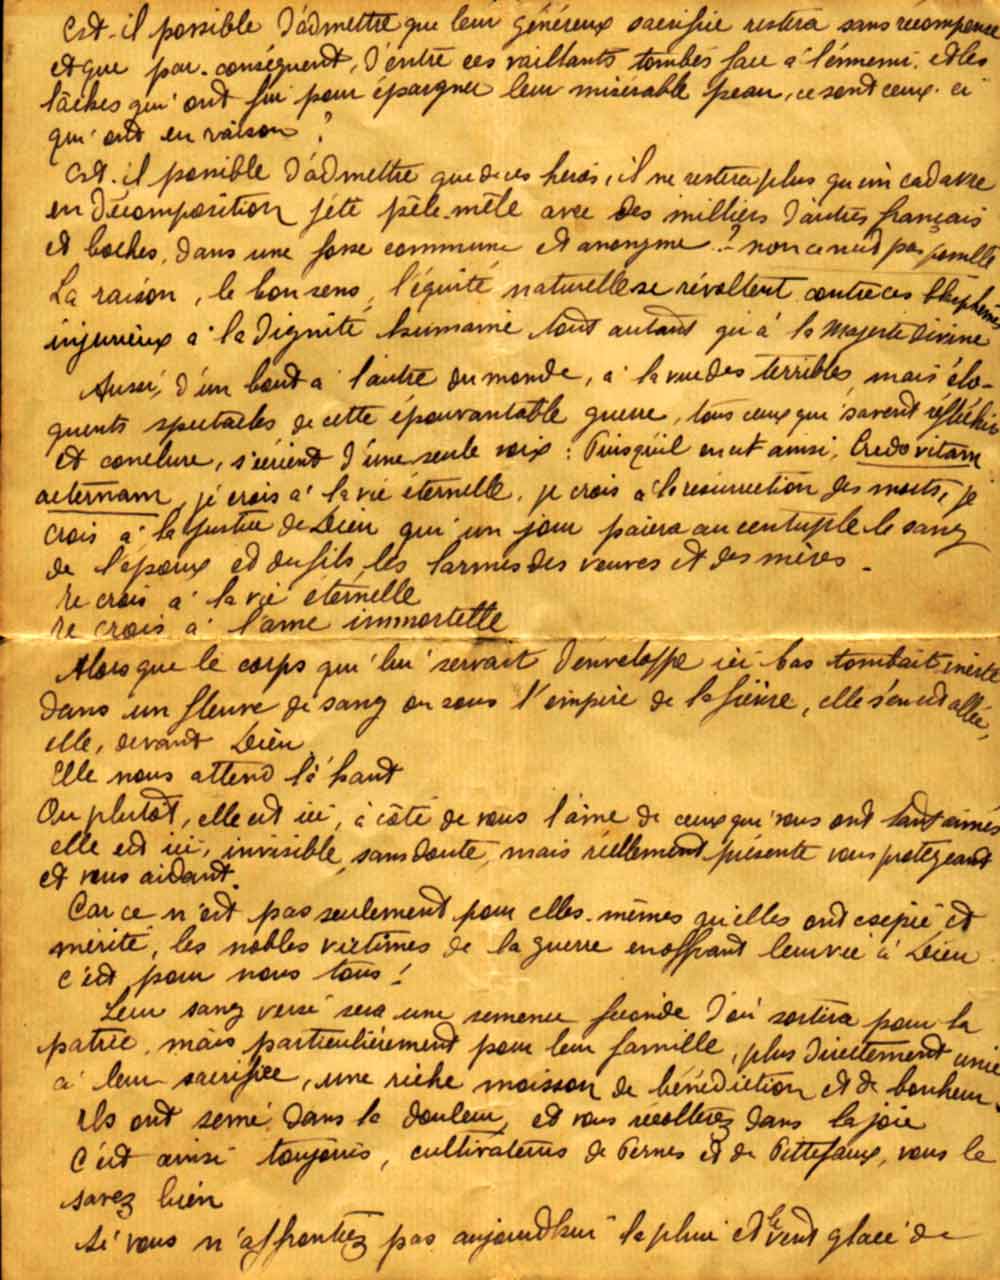 Est-il possible d'admettre que leur généreux sacrifice restera sans récompense
et que par-conséquent, d'entre ces vaillants tombés face à l'ennemi, et les
lâches qui ont fui pour épargner leur misérable peau, ce sont ceux-ci
qui ont eu raison ?
Est-il possible d'admettre que de ces héros, il ne restera plus qu'un cadavre
en décomposition jeté pêle-mêle avec des milliers d'autres français
et boches, dans une fosse commune et anonyme ? - non ce n'est pas possible
La raison, le bon sens, l'équité naturelle se révoltent contre ces blasphèmes
injurieux à la dignité humaine tout autant qu'à la Majesté divine
Aussi, d'un bout à l'autre du monde, à la vue des terribles mais élo-
quents spectacles de cette épouvantable guerre, tous ceux qui savent réfléchir
et conclure, s'écrient d'une seule voix : Puisqu'il en est ainsi, Credo vitam
aeternam, je crois à la vie éternelle, je crois à la résurrection des morts, je
crois à la justice de Dieu qui un jour paiera au centuple le sang
de l'époux et du fils, les larmes des veuves et des mères -
Je crois à la vie éternelle
Je crois à l'âme immortelle
Alors que le corps qui lui servait d'enveloppe ici bas tombait inerte
dans un fleuve de sang ou sous l'empire de la fièvre, elle s'en est allée,
elle, devant Dieu
Elle nous attend là haut
Ou plutôt, elle est ici, à côté de vous l'âme de ceux qui vous ont tant aimés
elle est ici, invisible, sans doute, mais réellement présente vous protégeant
et vous aidant.
Car ce n'est pas seulement pour elles-mêmes qu'elles ont expié et
mérité, les nobles victimes de la guerre en offrant leur vie à Dieu
c'est pour nous tous !
Leur sang versé sera une semence féconde d'où sortira pour la
patrie, mais particulièrement pour leur famille, plus directement unie
à leur sacrifice, une riche moisson de bénédiction et de bonheur.
Ils ont semé dans la douleur, et vous récolterez dans la joie
C'est ainsi toujours, cultivateurs de Pernes et de Pittefaux, vous le
savez bien
Si vous n'affrontiez pas aujourd'hui la pluie et le vent glacé de